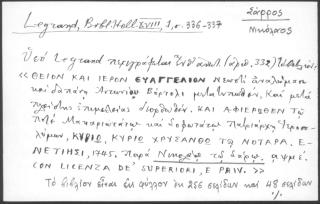 Legrand, Bibl. Hell. XVIII, 1, σ. 336-337
Σάρρος
Νικόλαος
Ὑπὸ Legrand περιγράφεται (ἀριθ. 332)
«ΘΕΙΟΝ ΚΑΙ ΙΕΡΟΝ ΕΥΑΓΓΕΛΙΟΝ Νεωστὶ ἀναλώμασι
καὶ δαπάνῃ Ἀντωνίου Βόρτολι μετατυπωθέν, Καὶ μετὰ
πλείστης ἐπιμελείας διορθωθέν. ΚΑΙ ΑΦΙΕΡΩΘΕΝ ΤΩ
ποτὲ Μακαριωτάτῳ καὶ Σοφωτάτῳ Πατριάρχῃ Ἱεροσο-
λύμων, ΚΥΡΙΩ, ΚΥΡΙΩ ΧΡΥΣΑΝΘΩ ΤΩ ΝΟΤΑΡΑ. Ε-
ΝΕΤΙΗΣΙ, 1745. Παρὰ Νικολάῳ τῷ Σάρῳ, αψμέ.
CON LICENZA DE' SUPERIORI, E PRIV.»
Τὸ βιβλίον εἶναι εἰς φύλλον ἐκ 256 σελίδων καὶ 48 σελίδων